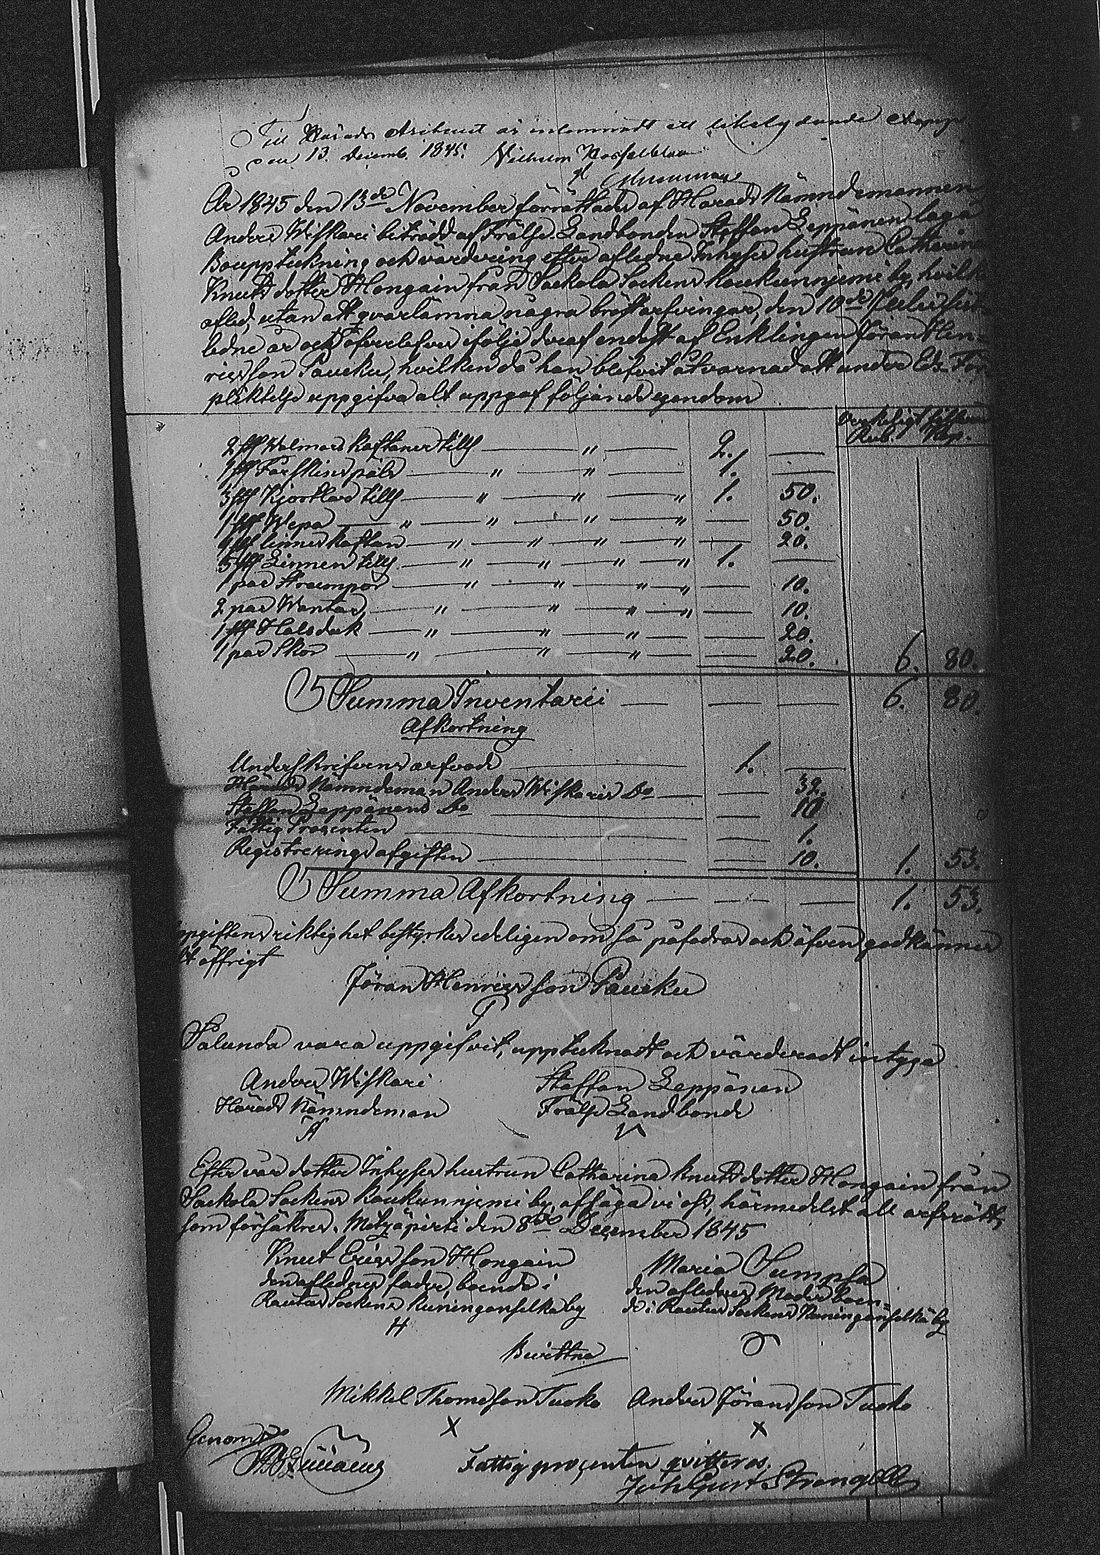 Till Härads Arkivet är inlemnadt ett likalydande Exempl.
den 13 Decemb. 1845. Vilhelm Hasselblatt
År 1845 den 13de November förrättades af Härads Nämndemannen
Anders Wiskari biträdd af Frälse Landbonden Staffan Leppänen laga
Bouppteckning och värdering efter aflidne Inhyses hustrun Catharina
Knuts dotter Hongain från Sackola Sockens Koukunniemi by, hvilken
afled, utan att qvarlämna några bröstarfvingar, den 10de
ledne år och öfverlefves i följe deraf endast af Enklingen Jöran Hen-
ricsson Paucku, hvilken då han blefvit åtvarnad att under Eds För
pliktelse uppgifva alt uppgaf följande egendom
Rub. Kop.
2 st Walmars kaftaner till — " — 2. —
1 st Fårskins päls — " — " 1. —
3 st Kjortlar till — " — " — " 1. 50.
1 st Wepa — " — " — " — " — 50.
1 st linnes kaftan — " — " — " — " — 20.
5 st Linnen till — " — " — " — " 1. —
1 par Strumpor — " — " — " — 10.
2 par Wantar — " — " — " — 10.
1 st Halsduk — " — " — " — 20.
1 par Skor — " — " — " — 20. 6. 80.
Summa Inventarii — — — 6. 80.
Afkortning
Underskrifvens arfvode — 1. —
Härads Nämndeman Anders Wiskaris Do — — 32.
Staffan Leppänens Do — — 10
Fattig Procenten — — 1.
Registrerings afgiften — — 10. 1. 53.
Summa Afkortning — — — 1. 53.
uppgiftens riktighet bestyrkes edeligen om så påfodras och äfven godkännes
alt öffrigt
Jöran Henricsson Paucku
Sålunda vara uppgifvit, upptecknadt och värderadt intyga
Anders Wiskari Staffan Leppänen
Härads Nämndeman Frälse Landbonde
Efter vår dotter Inhyses hustrun Catharina Knuts dotter Hongain från
Sackola Sockens Koukunniemi by, afsäga vi oss, härmedelst all arfsrätt,
som försäkras. Metsäpirti den 8de December 1845
Knut Ericsson Hongain Maria Sumpsa
den aflednes fader, boende i den aflednes Moder boen-
Rautus Sockens Kuninganselkä by de i Rautus Sockens Kuninganselkä by
H
Bevittna
Mikkel Thomasson Tuoko Anders Jöransson Tuoko
X X
Genom
Fattig procenten qvitteras.
Joh Gust Strengell